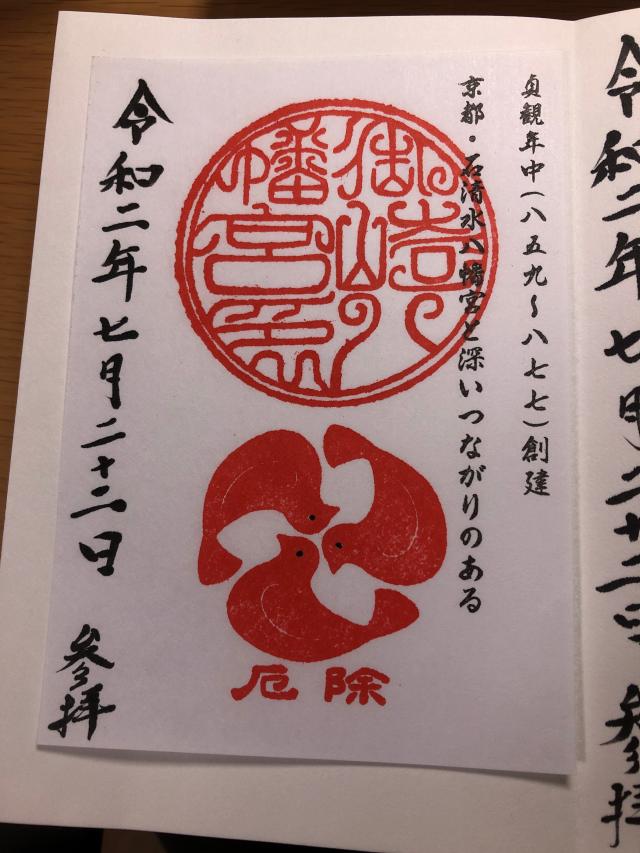 令和二年七月二十二日 参拝
貞観年中(八五九～八七七)創建
京都・石清水八幡宮と深いつながりのある
御崎八
幡宮印
厄除
令和二年七月二十二日 参拝